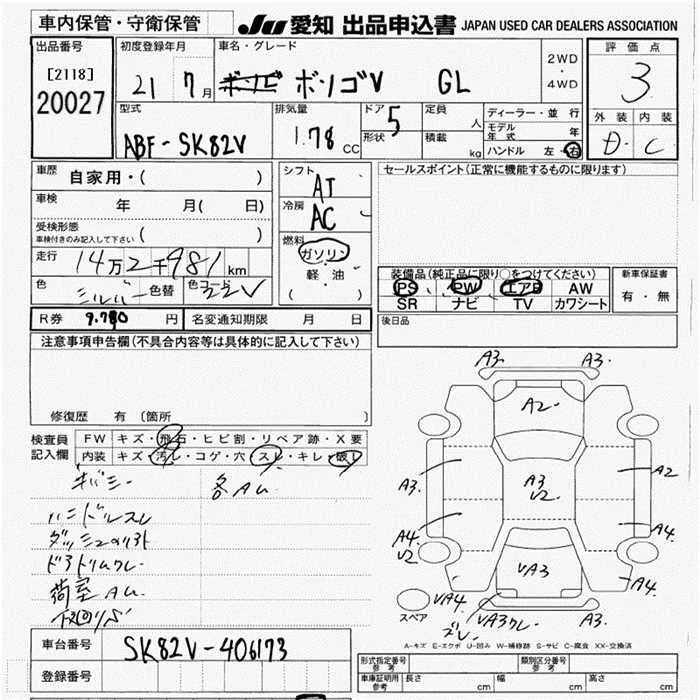 車内保管・守衛保管
JU 愛知 出品申込書 JAPAN USED CAR DEALERS ASSOCIATION
出品番号
[2118]
20027
初度登録年月
21 7月
車名・グレード
ボンゴV GL
2WD
・
4WD
評価点
3
外装 内装
D・C
型式
ABF-SK82V
排気量
1.78 CC
ドア 5
形状
定員 人
積載 kg
ディーラー・並行
モデル年式 年
ハンドル 左・右
車歴
自家用・( )
車検
年 月( 日)
受検形態
車検付きのみ記入して下さい ( )
走行
14万2千981km
色
シルバー 色替 色コード 22V
シフト
AT
冷房
AC
燃料
ガソリン
軽・油
( )
セールスポイント(正常に機能するものに限ります)
装備品(純正品に限り○をつけてください)
PS PW エアB AW
SR ナビ TV カワシート
新車保証書
有・無
R券 9.780 円 名変通知期限 月 日
後日品
注意事項申告欄(不具合内容等は具体的に記入して下さい)
修復歴 有 〔箇所
検査員
記入欄
FW キズ・飛石・ヒビ割・リペア跡・X要
内装 キズ・汚レ・コゲ・穴・スレ・キレ・破レ
各AU
ハンドルスレ
荷室AU
A3. A3.
A2.
A3. A3 U2 A2
A4. U2 A4.
VA3
VA4. VA3クレ・ズレ A4.
スペア
A-キズ E-エクボ U-凹み W-補修跡 S-サビ C-腐食 XX-交換済
車台番号
SK82V-406173
登録番号
形式指定番号 参考
類別区分番号 参考
車庫証明用 参考 長さ cm 幅 cm 高さ cm